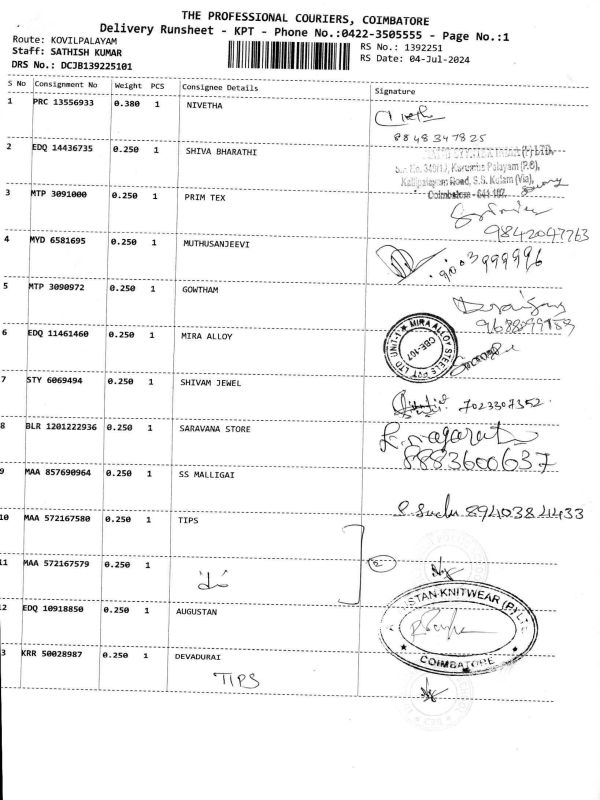 THE PROFESSIONAL COURIERS, COIMBATORE
Delivery Runsheet - KPT - Phone No.:0422-3505555 - Page No.:1
Route: KOVILPALAYAM
RS No.: 1392251
Staff: SATHISH KUMAR
RS Date: 04-Jul-2024
DRS No.: DCJB139225101
S No Consignment No Weight PCS Consignee Details Signature
1 PRC 13556933 0.380 1 NIVETHA
8848347825
2 EDQ 14436735 0.250 1 SHIVA BHARATHI
Kallipalayam Road, S.S. Kulam (Via),
3 MTP 3091000 0.250 1 PRIM TEX
Coimbatore - 641 107.
9842047763
4 MYD 6581695 0.250 1 MUTHUSANJEEVI
9003999996
5 MTP 3090972 0.250 1 GOWTHAM
6 EDQ 11461460 0.250 1 MIRA ALLOY
MIRA ALLOY STEELS PVT LTD UNIT-1
CBE-107
7 STY 6069494 0.250 1 SHIVAM JEWEL
7023307352
8 BLR 1201222936 0.250 1 SARAVANA STORE
8883600637
9 MAA 857690964 0.250 1 SS MALLIGAI
8940384433
10 MAA 572167580 0.250 1 TIPS
11 MAA 572167579 0.250 1
2
12 EDQ 10918850 0.250 1 AUGUSTAN
STAN KNITWEAR (P) LTD
COIMBATORE
3 KRR 50028987 0.250 1 DEVADURAI
TIPS